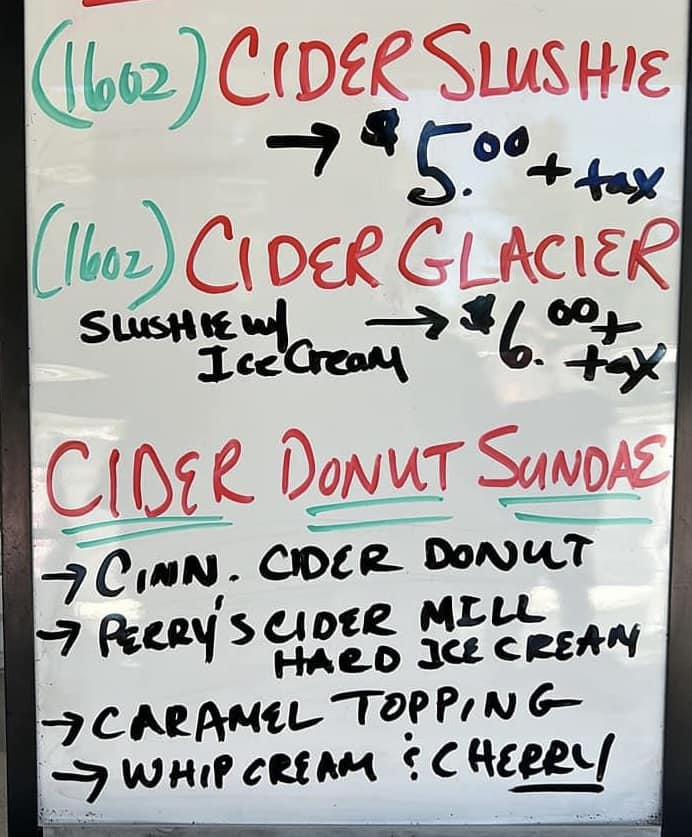 (16oz) CIDER SLUSHIE
→ $5.00 + tax
(16oz) CIDER GLACIER
SLUSHIE w/ → $6.00 +
Ice Cream tax
CIDER DONUT SUNDAE
→ CINN. CIDER DONUT
→ PERRY'S CIDER MILL
HARD ICE CREAM
→ CARAMEL TOPPING
→ WHIP CREAM & CHERRY